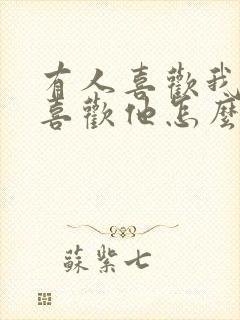 有人喜歡我
喜歡他怎麼
蘇紫七